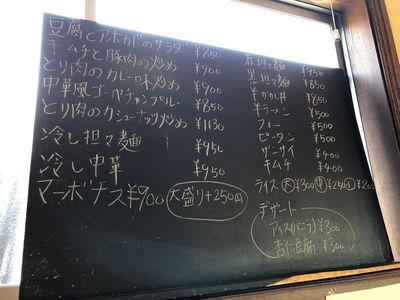 豆腐とアボカドのサラダ ¥850
キムチと豚肉の炒め ¥900
とり肉のカレー味炒め ¥900
中華風ゴーヤチャンプルー ¥850
とり肉のカシューナッツ炒め ¥1130
冷し担々麺 ¥950
冷し中華 ¥950
マーボナス ¥900 大盛り+250円
赤担々麺 ¥950
黒担々麺 ¥850
¥850
ラーメン ¥500
フォー ¥500
ピータン ¥500
ザーサイ ¥400
キムチ ¥400
ライス 大 ¥300 中 ¥250 小 ¥200
デザート
アイス(バニラ) ¥300
杏仁豆腐 ¥300